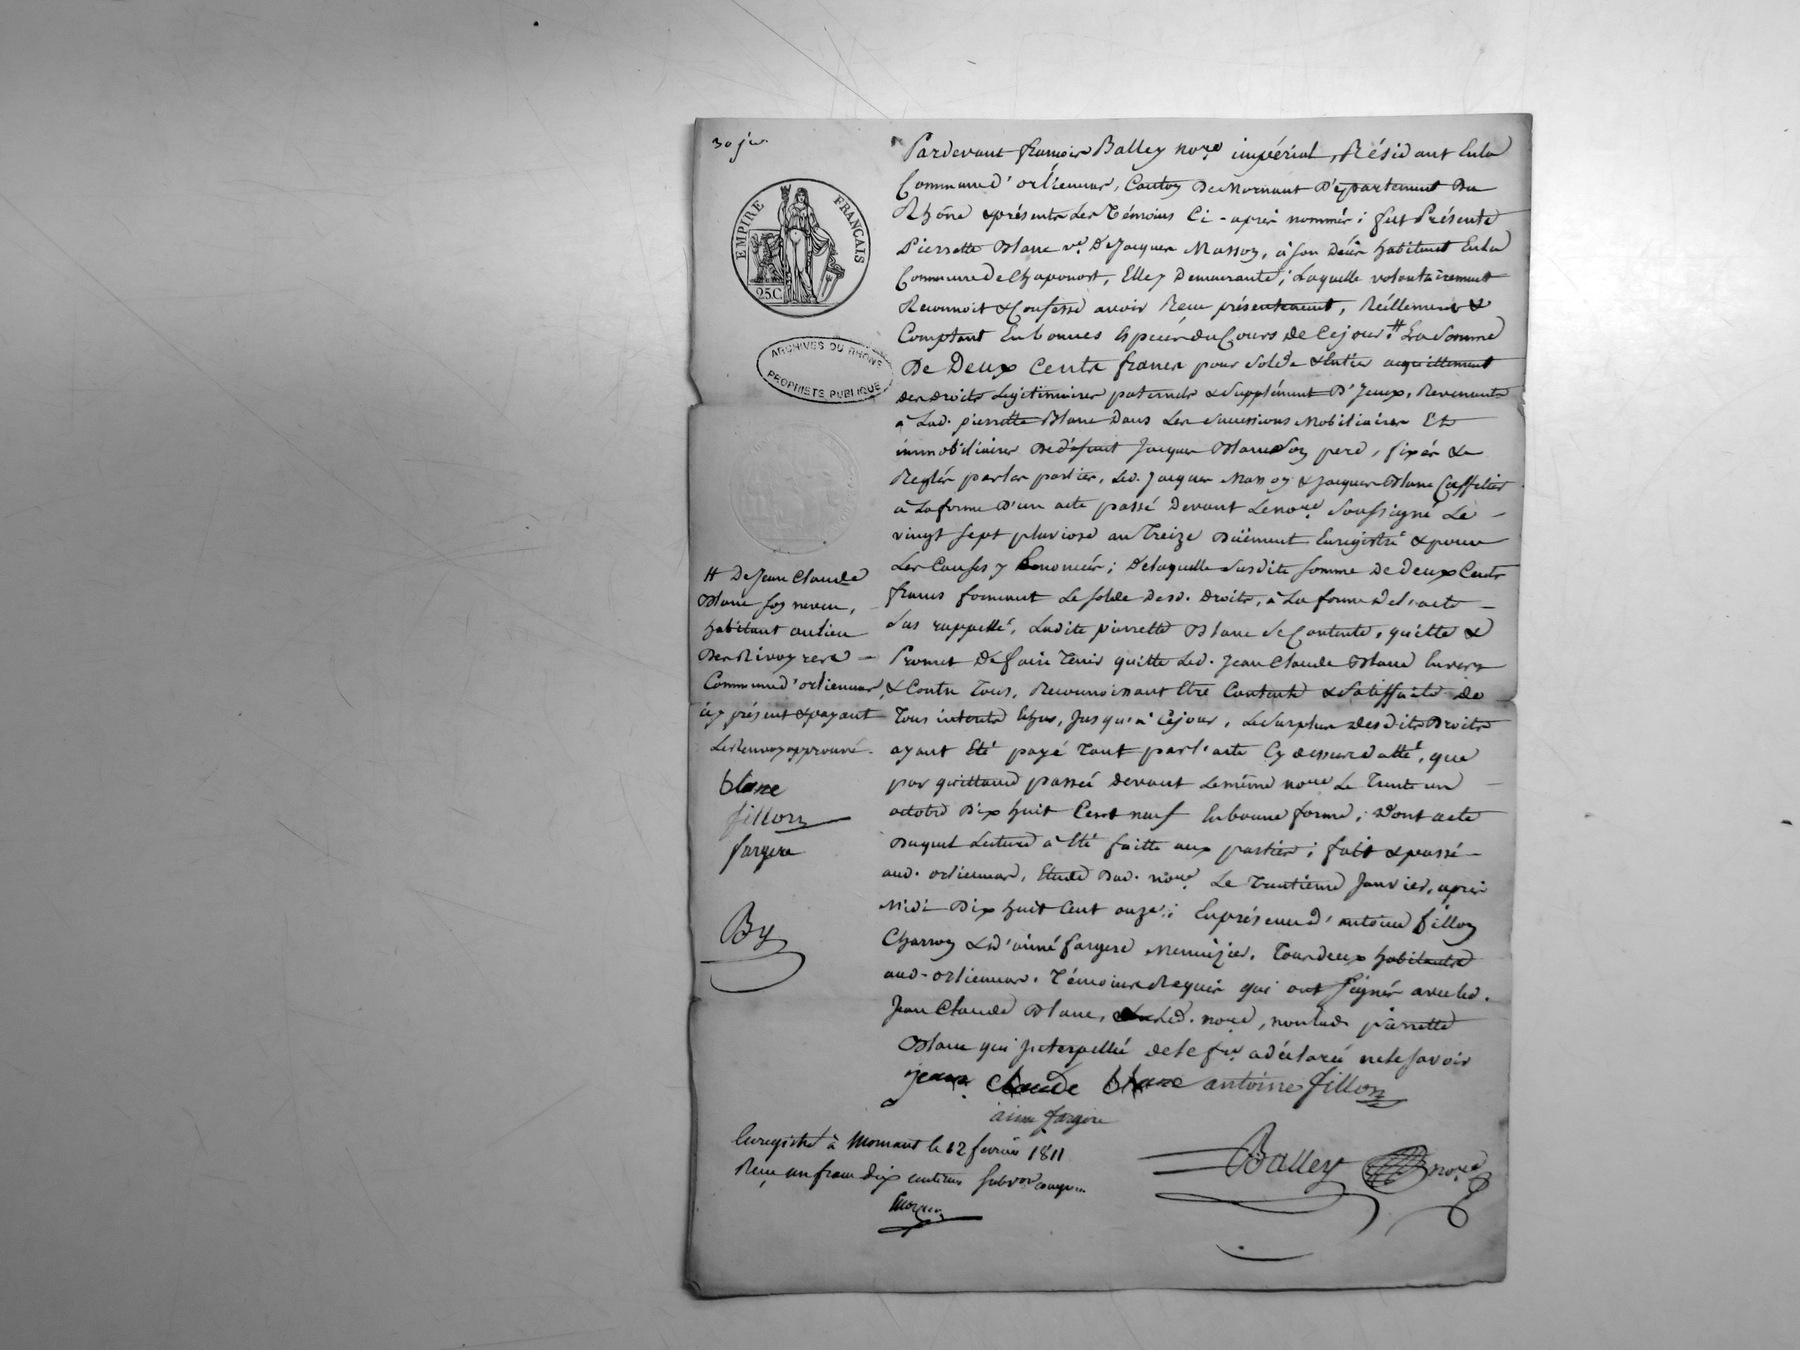 30 jer
Pardevant françois Balley nore impérial, Résidant En la
Commune d'orliennas, Canton De Mornant Département Du
Rhône & présents Les Témoins Ci-après nommés; fut Présente
Pierrette Blanc ve De Jacques Masson, à son décès habitant En la
Commune de Chaponost, Elle y Demeurante; Laquelle volontairement
Reconnoit & Confesse avoir Reçu présentement, Réellement &
Comptant En bonnes Espèces du Cours de Ce jour # La Somme
De Deux Cents francs pour Solde & Entier acquittement
des droits Légitimaires paternels & Supplément D'Iceux, Revenants
à Lad. pierrette Blanc Dans Les Successions Mobiliaires Et
immobiliaires De défunt Jacques Blanc Son pere, fixés &
Reglés par les parties, Led. Jacques Masson & Jacques Blanc Coffetier
à La forme D'un acte passé Devant Le nore Soussigné Le
vingt sept pluviose an Treize Duëment Enregistré & pour
Les Causes y Enoncées; De laquelle Susdite somme De deux Cents
francs formant Le solde Desd. Droits, à La forme de l'acte
Sus rappellé, Ladite pierrette Blanc Se Contente, quitte &
Promet De faire Tenir quitte Led. Jean Claude Blanc Envers
& Contre Tous, Reconnoissant Etre Contente & Satisfaite de
Tous intérêts Echus, Jusqu'à Cejour, Le Surplus desdits Droits
ayant Eté payé Tant par l'acte Cy dessus datté, que
par quittance passée devant Le même nore Le Trente un
octobre Dix huit Cent neuf En bonne forme; Dont acte
Duquel Lecture a été faitte aux parties; fait & passé
aud. orliennas, Etude Dud. nore Le Trentieme Janvier, après
Midi Dix huit Cent onze; En présence d'antoine fillon
Charron & d'aimé fargere Menuizier, Tous deux habitants
aud. orliennas, Témoins Requis qui ont Signés avec led.
Jean Claude Blanc, & Led. nore, non lad. pierrette
Blanc qui Interpellée de le fre a déclaré ne le Savoir
jean claude blanc antoine fillon
aime fargere
Balley nore
# De Jean Claude
Blanc son neveu,
habitant au lieu
Des Rivoyres
Commune d'orliennas,
icy présent & payant
Le Renvoy approuvé.
blanc
fillon
fargere
By
Enregistré à Mornant le 12 février 1811
Reçu un franc dix centimes Subvon comprise
EMPIRE FRANÇAIS
25C
ARCHIVES DU RHÔNE
PROPRIÉTÉ PUBLIQUE